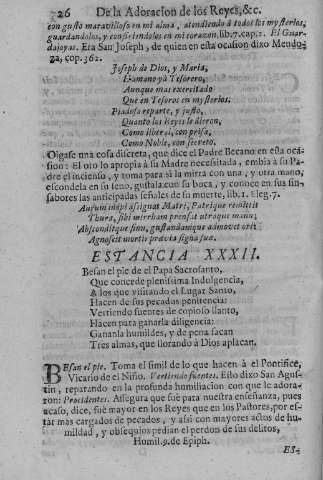 26 De la Adoracion de los Reyes, &c.
con gusto maravilloso en mi alma, atendiendo à todos los mysterios,
guardandolos, y confiriendolos en mi corazon, lib.7. cap.2. El Guar-
dajoyas. Era San Joseph, de quien en esta ocasion dixo Mendo-
za, cop. 362.
Joseph de Dios, y Maria,
Hermano yà Tesorero,
Aunque mas exercitado
Que en Tesoros en mysterios.
Piadosa reparte, y justo,
Quanto los Reyes le dieron,
Como liberal, con prisa,
Como Noble, con secreto.
Oigase una cosa discreta, que dice el Padre Becano en esta oca-
sion: El oro lo apropia à su Madre necesitada, embia à su Pa-
dre el incienso, y toma para sì la mirra con una, y otra mano,
escondela en su seno, gustala con su boca, y conoce en sus sin-
sabores las anticipadas señales de su muerte, lib. 1. Eleg. 7.
Aurum inopi assignat Matri, Patrique remittit
Thura, sibi mirrham prensat utraque manu;
Absconditque sinu, gustandamque admovet ori:
Agnoscit mortis prævia signa suæ.
ESTANCIA XXXII.
Besan el pie de el Papa Sacrosanto,
Que concede plenisima Indulgencia,
A los que visitando el Lugar Santo,
Hacen de sus pecados penitencia:
Vertiendo fuentes de copioso llanto,
Hacen para ganarla diligencia:
Gananla humildes, y de pena sacan
Tres almas, que llorando à Dios aplacan.
BEsan el pie. Toma el simil de lo que hacen à el Pontifice,
Vicario de el Niño. Vertiendo fuentes. Esto dixo San Agus-
tin, reparando en la profunda humiliacion con que le adora-
ron: Procidentes. Assegura que fuè para nuestra enseñanza, pues
acaso, dice, fuè mayor en los Reyes que en los Pastores, por es-
tàr mas cargados de pecados, y asi con mayores actos de hu-
mildad, y obsequios pedian el perdon de sus delitos,
Homil. 9. de Epiph.
ES-